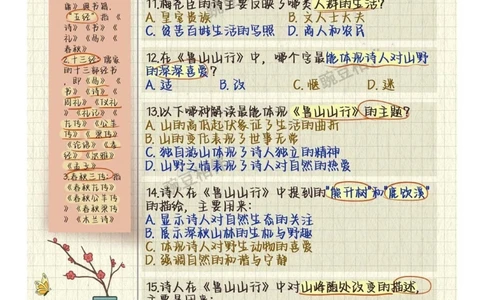 庸》四书籍.
"五经"指《
诗》《书》《
礼》《易》《
春秋》
2.十三经 儒家
的十三部经书
,即《易》《
书》《诗》《
周礼》《仪礼
》《礼记》《
左传》《公羊
传》《穀梁
传》《论语》
《孝经》《尔雅》
《孟子》
3.春秋三传:指
《春秋左传》
《春秋公羊传
》《春秋穀梁
传》
11.梅尧臣的诗主要反映了哪类人群的生活?
A.皇宫贵族 B.文人士大夫
C.贫苦百姓生活的写照 D.商人和农民
12.在《鲁山山行》中,哪个字最能体现诗人对山野
的深深喜爱?
A.适 B.改 C.惬 D.迷
13.以下哪种解读最能体现《鲁山山行》的主题?
A.山的高低起伏象征了生活的曲折
B.山的变化表现了世事无常
C.独自游山体现了诗人独立的精神
D.山野之情表现了诗人对自然的热爱
14.诗人在《鲁山山行》中提到的"熊升树"和"鹿饮溪"
的描绘,主要用来:
A.显示诗人对自然生态的关注
B.展示深秋山林的生机与野趣
C.体现诗人对野生动物的喜爱
D.强调自然的和谐与宁静
15.诗人在《鲁山山行》中对山峰随处改变的描述,